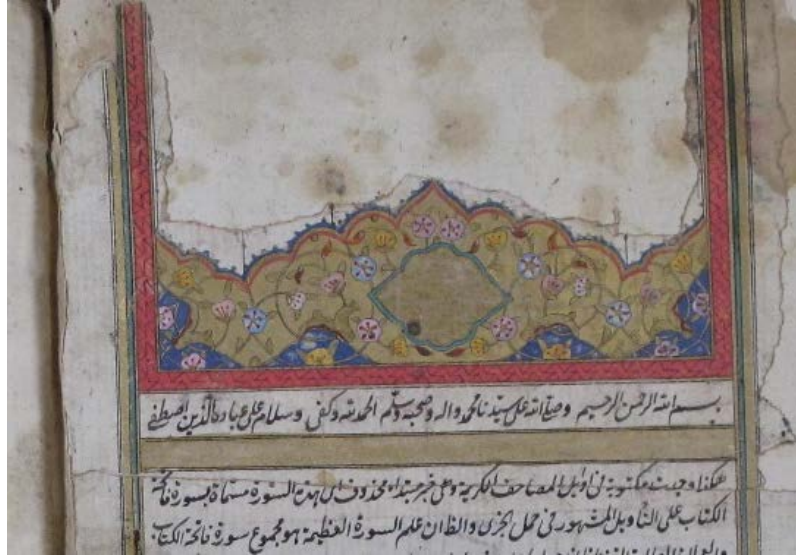 بسم الله الرحمن الرحيم وصلى الله على سيدنا محمد واله وصحبه وسلم الحمد لله وكفى وسلام على عباده الذين اصطفى
هكذا وجدت مكتوبة فى اوايل المصاحف الكريمة وهى خبر مبتداء محذوف اى هذه السورة مسماة بسورة فاتحة
الكتاب على التاويل المشهور فى حمل الجزى والظان علم السورة العظيمة هو مجموع سورة فاتحة الكتاب